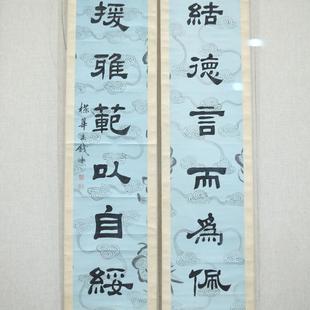 結德言而為佩
援雅範以自綏